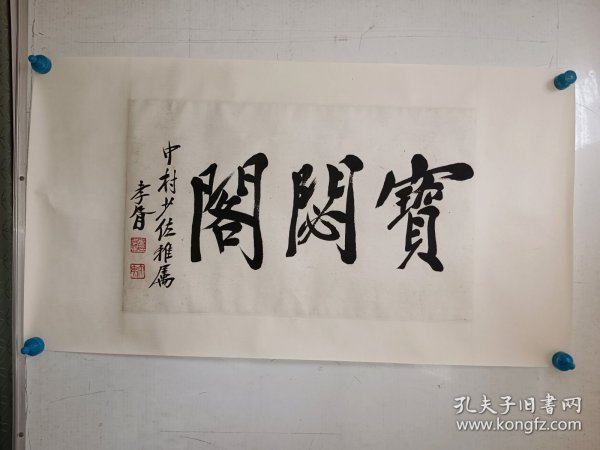 寶閟閣
中村少佐雅属
孝胥
孔夫子旧书网
www.kongfz.com